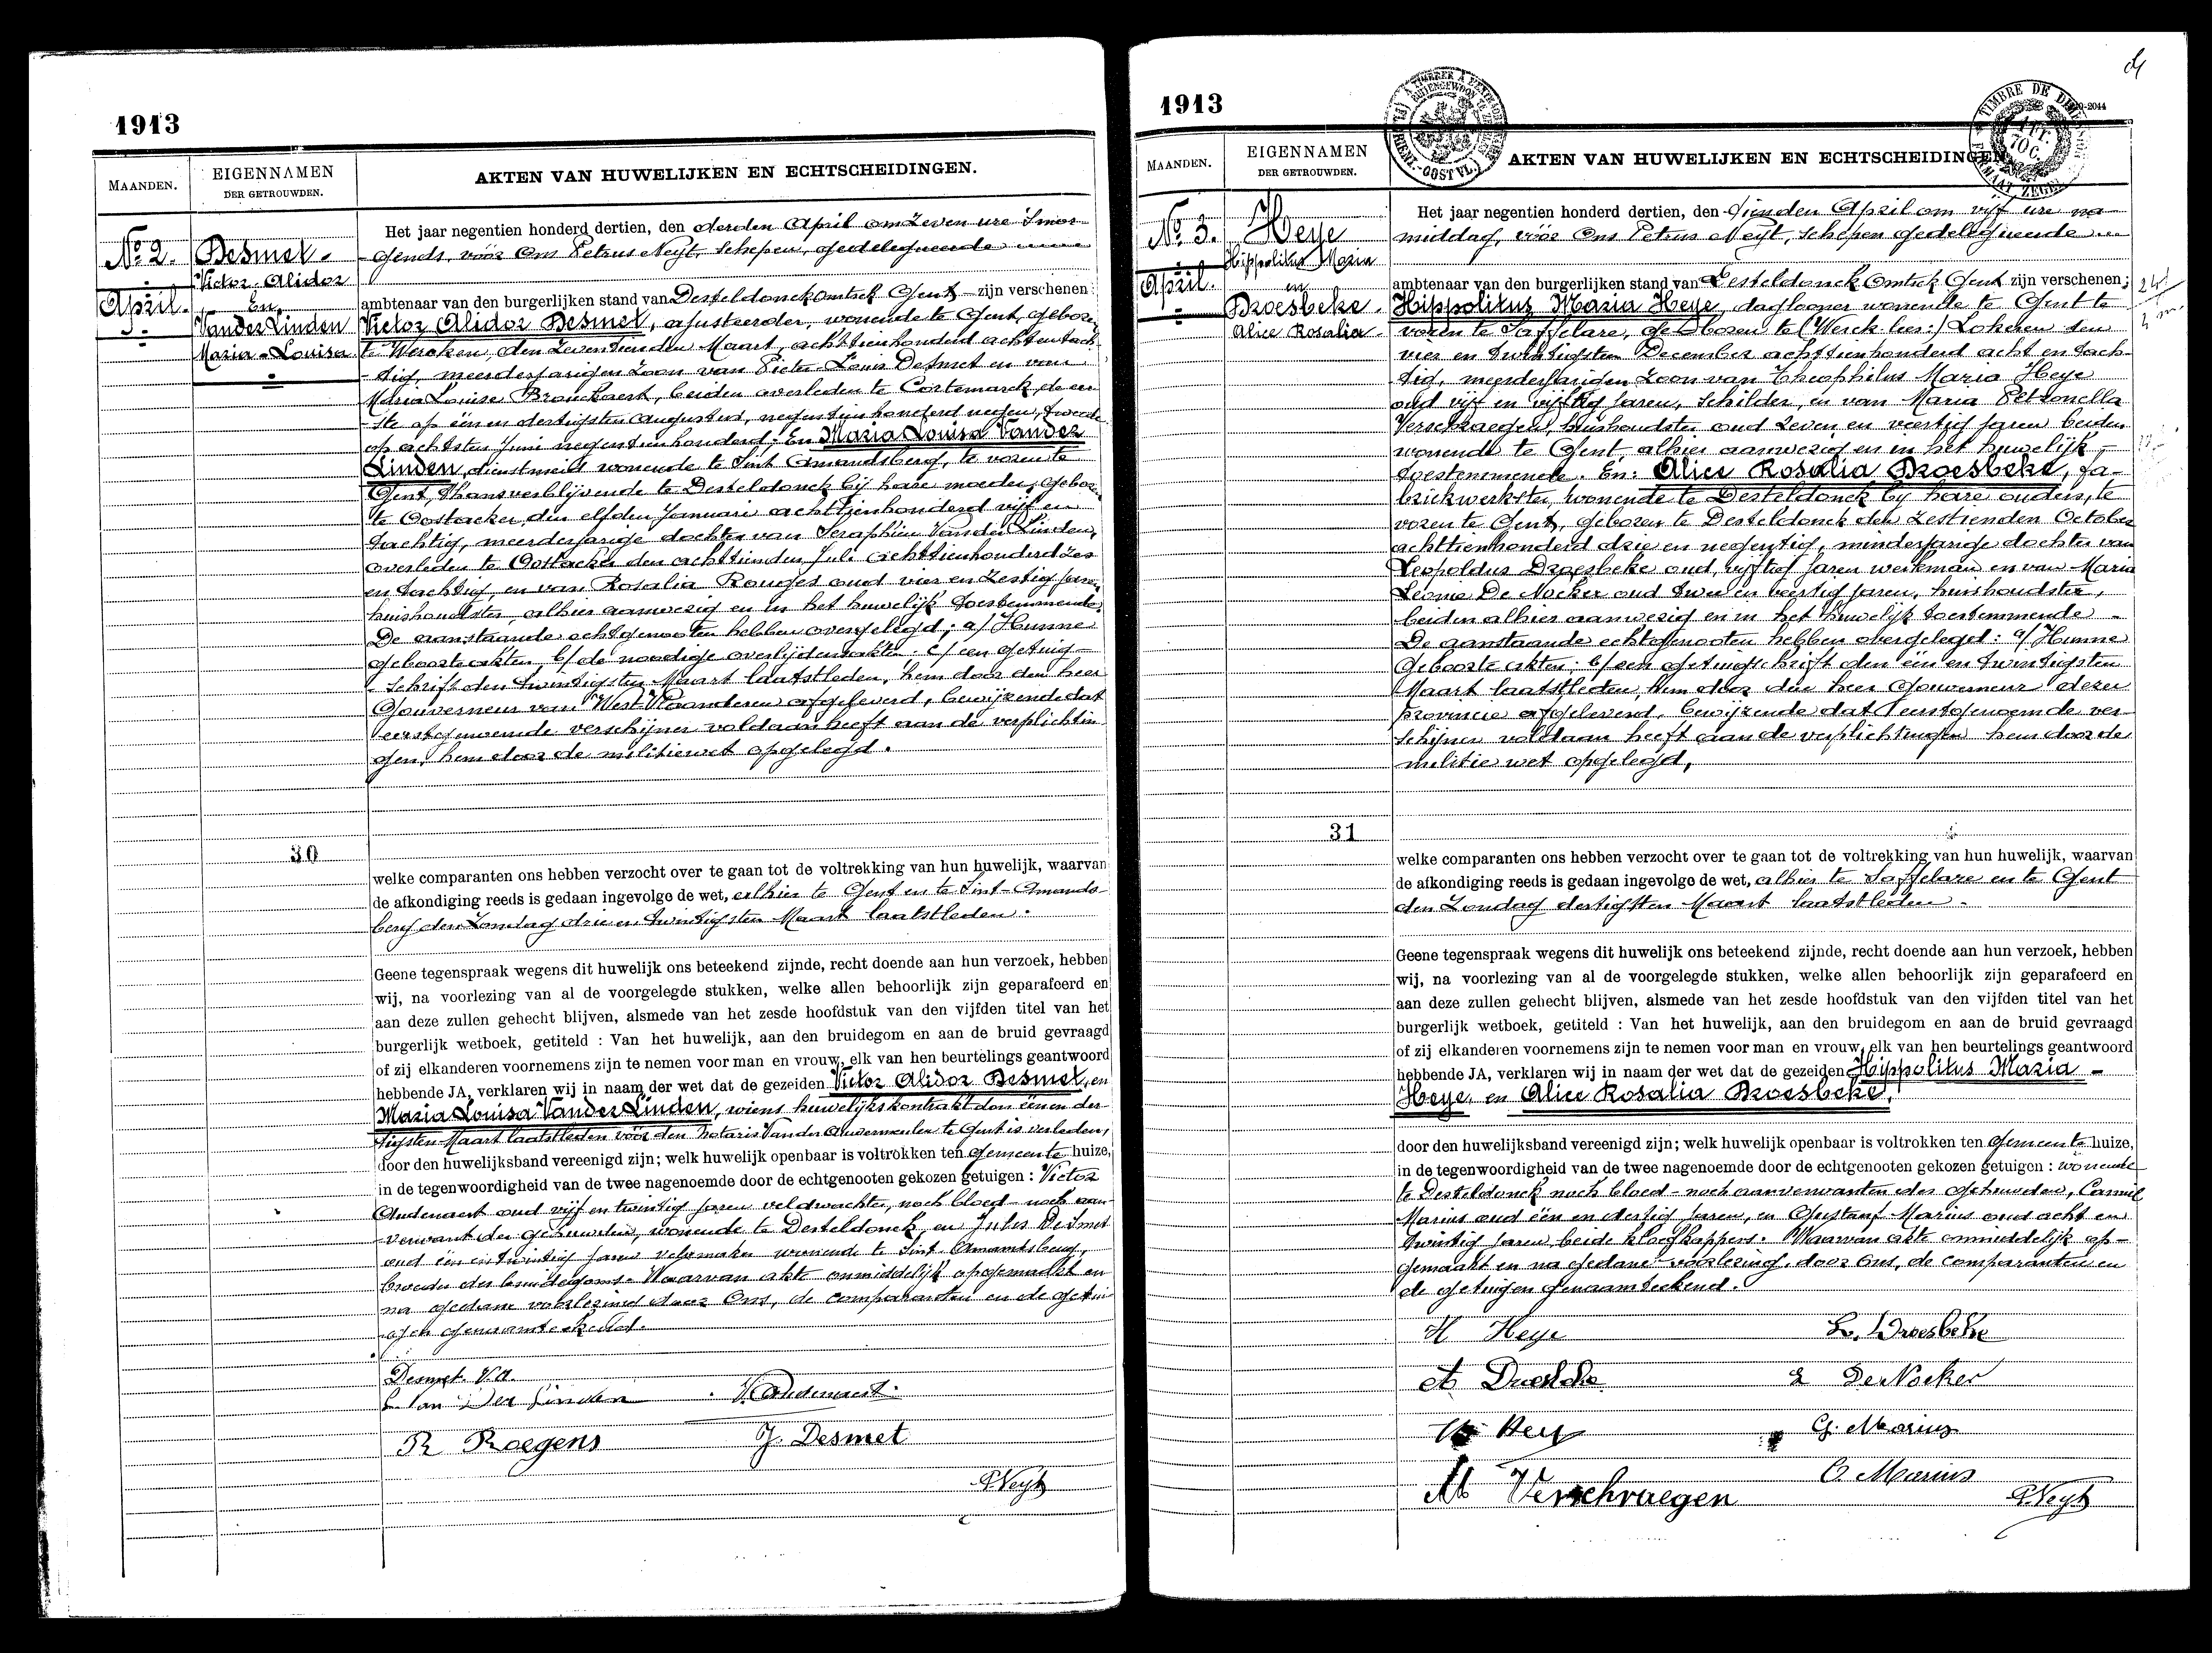 1913
MAANDEN.
EIGENNAMEN
DER GETROUWDEN.
AKTEN VAN HUWELIJKEN EN ECHTSCHEIDINGEN.
No 2.
April.
Desmet.
Victor-Alidor
En
Vander Linden
Maria-Louisa
Het jaar negentien honderd dertien, den derden April om zeven ure 'smor-
gends, vóór Ons Petrus Neyt, schepen, gedelegueerde
ambtenaar van den burgerlijken stand van Desteldonck omtrek Gent zijn verschenen:
Victor Alidor Desmet, ajusteerder, wonende te Gent, geboren
te Wercken, den zeventienden Maart, achttienhonderd achtentach-
tig, meerderjarigen zoon van Pieter Louis Desmet en van
Maria Louise Bronckaert, beiden overleden te Cortemarck, de eer-
ste op één en dertigsten Augustus, negentienhonderd negen, tweede
op achtsten Juni negentienhonderd; En Maria Louisa Vander
Linden, dienstmeid wonende te Sint Amandsberg, te voren te
Gent, thans verblijvende te Desteldonck bij hare moeder, geboren
te Oostacker, den elfden Januari achttienhonderd vijf en
tachtig, meerderjarige dochter van Seraphien Vander Linden,
overleden te Oostacker den achttienden Juli achttienhonderd zes
en tachtig, en van Rosalia Roeges oud vier en zestig jaren,
huishoudster, alhier aanwezig en in het huwelijk toestemmende.
De aanstaande echtgenooten hebben overgelegd; a/ Hunne
geboorteakten, b/ de noodige overlijdensakten; c/ een getuig-
schrift den twintigsten Maart laatstleden, hem door den heer
Gouverneur van West-Vlaanderen afgeleverd, bewijzende dat
eerstgenoemde verschijner voldaan heeft aan de verplichtin-
gen, hem door de militiewet opgelegd.
30
welke comparanten ons hebben verzocht over te gaan tot de voltrekking van hun huwelijk, waarvan
de afkondiging reeds is gedaan ingevolge de wet, alhier te Gent en te Sint-Amands-
berg den Zondag drie en twintigsten Maart laatstleden.
Geene tegenspraak wegens dit huwelijk ons beteekend zijnde, recht doende aan hun verzoek, hebben
wij, na voorlezing van al de voorgelegde stukken, welke allen behoorlijk zijn geparafeerd en
aan deze zullen gehecht blijven, alsmede van het zesde hoofdstuk van den vijfden titel van het
burgerlijk wetboek, getiteld : Van het huwelijk, aan den bruidegom en aan de bruid gevraagd
of zij elkanderen voornemens zijn te nemen voor man en vrouw, elk van hen beurtelings geantwoord
hebbende JA, verklaren wij in naam der wet dat de gezeiden Victor Alidor Desmet, en
Maria Louisa Vander Linden, wiens huwelijkskontrakt den éénen der-
tigsten Maart laatstleden vóór den Notaris Vander Auwermeulen te Gent is verleden,
door den huwelijksband vereenigd zijn; welk huwelijk openbaar is voltrokken ten gemeente huize,
in de tegenwoordigheid van de twee nagenoemde door de echtgenooten gekozen getuigen : Victor
Audenaert oud vijf en twintig jaren veldwachter, noch bloed- noch aan-
verwant der gehuwden, wonende te Desteldonck, en Jules Desmet
oud één en twintig jaren velomaker wonende te Sint-Amandsberg,
broeder des bruidegoms. Waarvan akte onmiddelijk opgemaakt en
na gedane voorlezing door Ons, de comparanten en de getui-
gen genaamteekend.
Desmet V.A.
L Van Der Linden
V. Audenaert
R Roegens
J. Desmet
P. Neyt
1913
MAANDEN.
EIGENNAMEN
DER GETROUWDEN.
AKTEN VAN HUWELIJKEN EN ECHTSCHEIDINGEN.
No 3.
April.
Heye
Hippolitus Maria
en
Droesbeke
Alice Rosalia
Het jaar negentien honderd dertien, den tienden April om vijf ure na-
middag, vóór Ons Petrus Neyt, schepen gedelegueerde
ambtenaar van den burgerlijken stand van Desteldonck omtrek Gent zijn verschenen;
Hippolitus Maria Heye, daglooner wonende te Gent te
voren te Saffelare, geboren te (Werck lees:) Lokeren den
vier en twintigsten December achttienhonderd acht en tach-
tig, meerderjarigen zoon van Theophilus Maria Heye
oud vijf en vijftig jaren, schilder, en van Maria Petronella
Verschraegen, huishoudster oud zeven en veertig jaren beiden
wonende te Gent, alhier aanwezig en in het huwelijk
toestemmende. En: Alice Rosalia Droesbeke, fa-
briekwerkster, wonende te Desteldonck bij hare ouders, te
voren te Gent, geboren te Desteldonck den zestienden October
achttienhonderd drie en negentig, minderjarige dochter van
Leopoldus Droesbeke oud, vijftig jaren werkman en van Maria
Leonie De Nocker oud twee en veertig jaren, huishoudster,
beiden alhier aanwezig en in het huwelijk toestemmende
De aanstaande echtgenooten hebben overgelegd: a/ Hunne
Geboorteakten; b/ een getuigschrift den één en twintigsten
Maart laatstleden hem door den heer Gouverneur dezer
provincie afgeleverd, bewijzende dat eerstgenoemde ver-
schijner voldaan heeft aan de verplichtingen hem door de
militie wet opgelegd,
31
welke comparanten ons hebben verzocht over te gaan tot de voltrekking van hun huwelijk, waarvan
de afkondiging reeds is gedaan ingevolge de wet, alhier te Saffelare en te Gent
den Zondag dertigsten Maart laatstleden.
Geene tegenspraak wegens dit huwelijk ons beteekend zijnde, recht doende aan hun verzoek, hebben
wij, na voorlezing van al de voorgelegde stukken, welke allen behoorlijk zijn geparafeerd en
aan deze zullen gehecht blijven, alsmede van het zesde hoofdstuk van den vijfden titel van het
burgerlijk wetboek, getiteld : Van het huwelijk, aan den bruidegom en aan de bruid gevraagd
of zij elkanderen voornemens zijn te nemen voor man en vrouw, elk van hen beurtelings geantwoord
hebbende JA, verklaren wij in naam der wet dat de gezeiden Hippolitus Maria
Heye, en Alice Rosalia Droesbeke,
door den huwelijksband vereenigd zijn; welk huwelijk openbaar is voltrokken ten gemeente huize,
in de tegenwoordigheid van de twee nagenoemde door de echtgenooten gekozen getuigen : wonende
te Desteldonck noch bloed- noch aanverwanten der gehuwden, Camiel
Marius oud één en dertig jaren, en Gustaaf Marius oud acht en
twintig jaren, beide kloefkappers. Waarvan akte onmiddelijk op-
gemaakt en na gedane voorlezing, door Ons, de comparanten en
de getuigen genaamteekend.
H Heye
L. Droesbeke
A Droesbeke
L De Nocker
Hey
G. Marius
M Verschraegen
C. Marius
P. Neyt